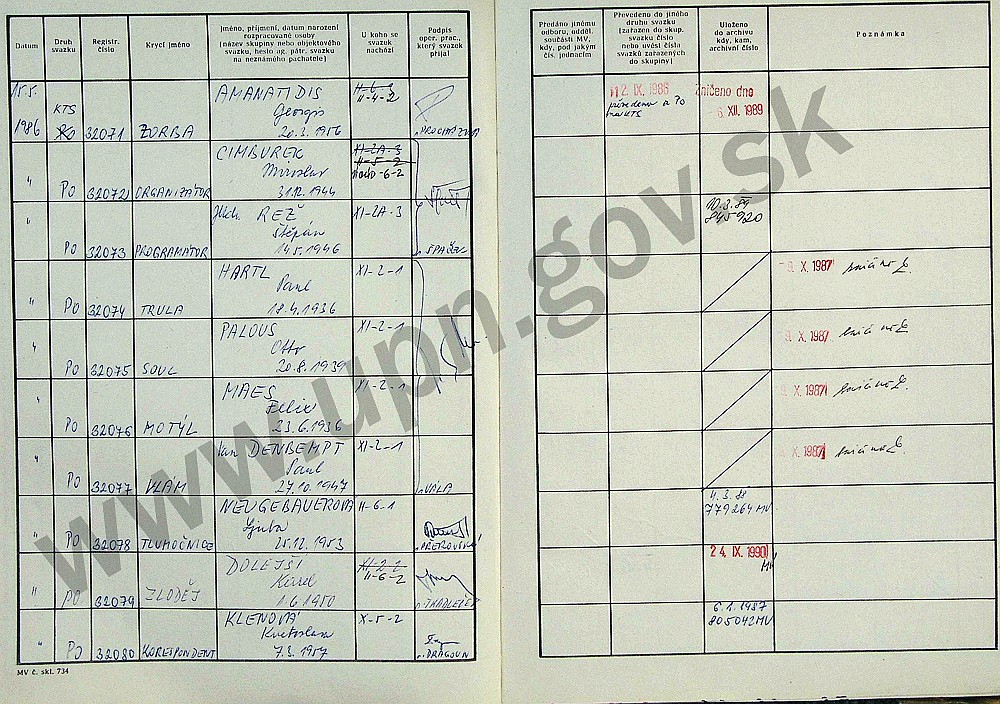 Datum
Druh
svazku
Registr.
číslo
Krycí jméno
Jméno, příjmení, datum narození
rozpracované osoby
(název skupiny nebo objektového
svazku, heslo ag. pátr. svazku
na neznámého pachatele)
U koho se
svazek
nachází
Podpis
oper. prac.,
který svazek
přijal
Předáno jinému
odboru, odděl.
součásti MV,
kdy, pod jakým
čís. jednacím
Převedeno do jiného
druhu svazku
(zařazen do skup.
svazku číslo
nebo uvést čísla
svazků zařazených
do skupiny)
Uloženo
do archivu
kdy, kam,
archivní číslo
Poznámka
15.5.
1986
KTS
32071
ZORBA
AMANATIDIS
Georgis
20.3.1956
II-4-2
PROCHÁZKA
2. IX. 1986
Zničeno dne
6. XII. 1989
"
PO
32072
ORGANIZÁTOR
CIMBUREK
Miroslav
31.12.1944
XI-2A-3
II-5-2
"
PO
32073
PROGRAMÁTOR
REŽ
Štěpán
14.5.1946
XI-2A-3
ŠPAČEK
10.3.89
845920
"
PO
32074
TRULA
HARTL
Paul
18.4.1936
XI-2-1
X. 1987
"
PO
32075
SOUL
PALOUS
Otto
20.8.1939
XI-2-1
X. 1987
"
PO
32076
MOTÝL
MAES
Felix
23.6.1936
XI-2-1
X. 1987
"
PO
32077
VLAM
Van DENBEMPT
Paul
27.10.1947
XI-2-1
VÁLA
X. 1987
"
PO
32078
TLUMOČNICE
NEUGEBAUEROVÁ
Ljuba
25.12.1953
II-6-1
4.3.88
779264 MV
"
PO
32079
ZLODĚJ
DOLEJŠÍ
Karel
1.6.1950
II-6-2
TKADLEČEK
24. IX. 1990
MV
"
PO
32080
KORESPONDENT
KLENOVÁ
Květoslava
7.3.1957
X-5-2
DRAGOUN
6.1.1987
805042 MV
MV č. skl. 734
www.upn.gov.sk